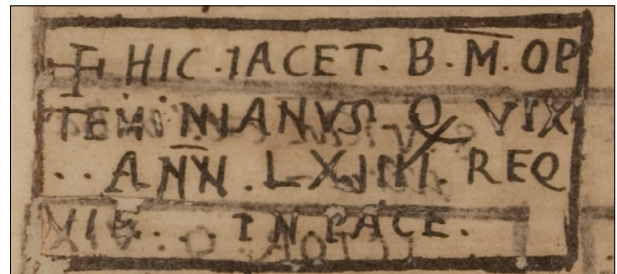 + HIC . IACET . B . M̅ . OP
TEMINIANVS Q VIX
. . AN̅N . LXIIII REQ
VIE . . IN PACE .